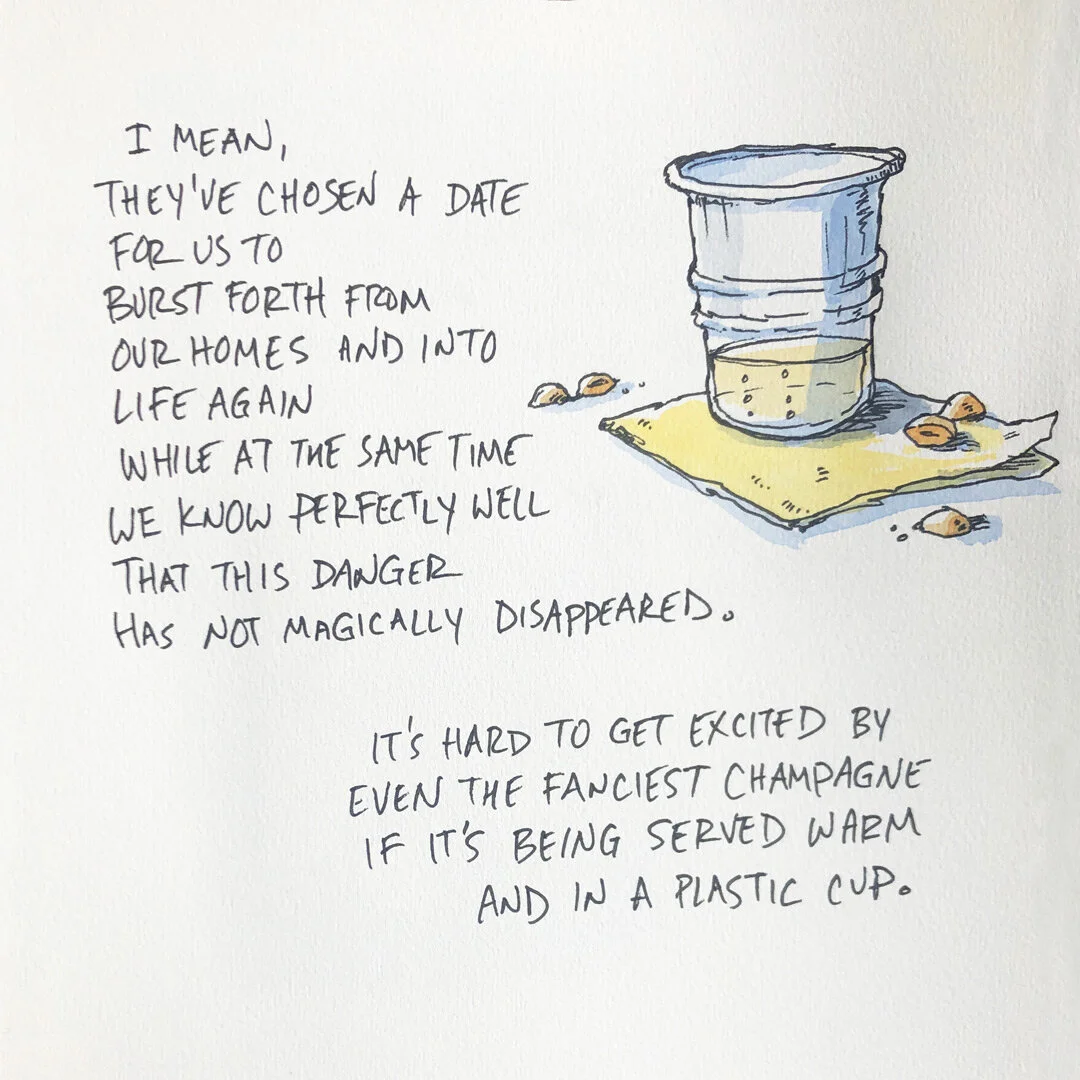 I MEAN,
THEY'VE CHOSEN A DATE
FOR US TO
BURST FORTH FROM
OUR HOMES AND INTO
LIFE AGAIN
WHILE AT THE SAME TIME
WE KNOW PERFECTLY WELL
THAT THIS DANGER
HAS NOT MAGICALLY DISAPPEARED.
IT'S HARD TO GET EXCITED BY
EVEN THE FANCIEST CHAMPAGNE
IF IT'S BEING SERVED WARM
AND IN A PLASTIC CUP.